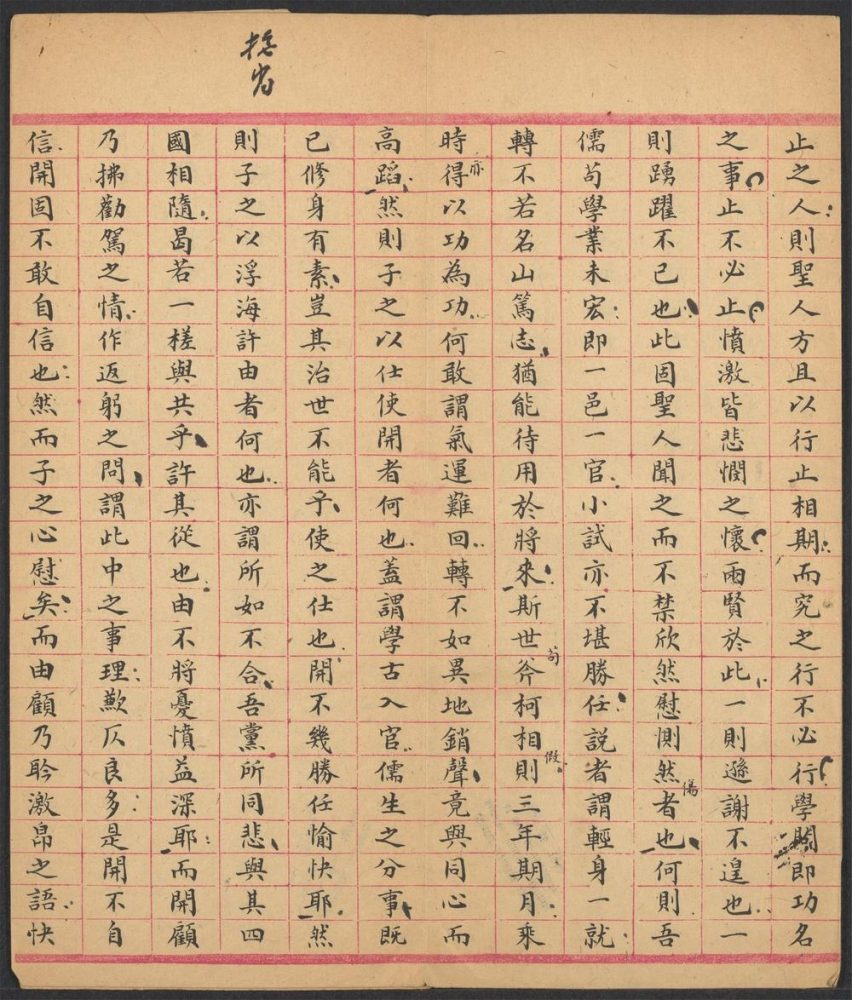 止之人則聖人方且以行止相期而究之行不必行學關即功名
之事止不必止憤激皆悲憫之懷兩賢於此一則遜謝不遑也一
則踴躍不已也此固聖人聞之而不禁欣然慰惻然傷者也何則吾
儒苟學業未宏即一邑一官小試亦不堪勝任説者謂輕身一就
轉不若名山篤志猶能待用於將來斯世苟斧柯相假則三年期月乘
時亦得以功為功何敢謂氣運難回轉不如異地銷聲竟與同心而
高蹈然則子之以仕使開者何也蓋謂學古入官儒生之分事既
已修身有素豈其治世不能乎使之仕也開不幾勝任愉快耶然
則子之以浮海許由者何也亦謂所如不合吾黨所同悲與其四
國相隨曷若一槎與共乎許其從也由不將憂憤益深耶而開顧
乃拂勸駕之情作返躬之問謂此中之事理歉仄良多是開不自
信開固不敢自信也然而子之心慰矣而由顧乃聆激帛之語快